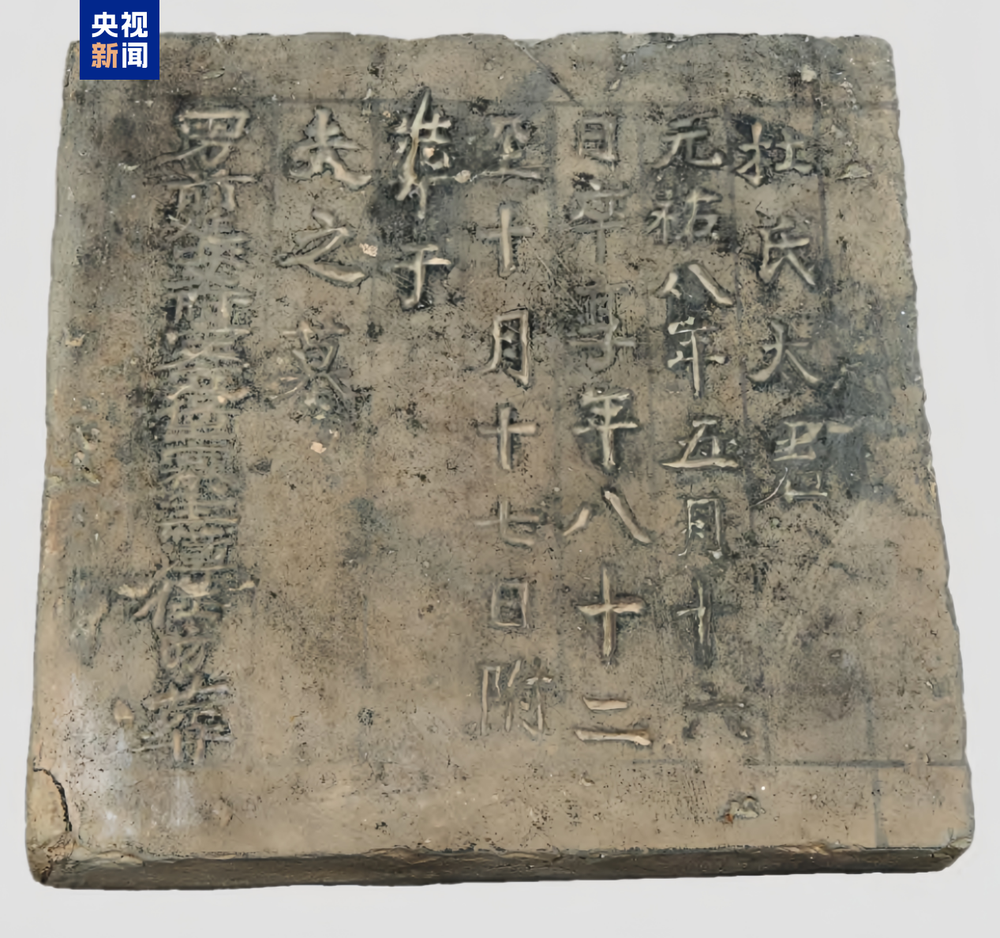 央视
新闻
杜氏大君
元祐八年五月十六
日卒享年八十二
至十月十七日附
葬于
夫之墓
男前